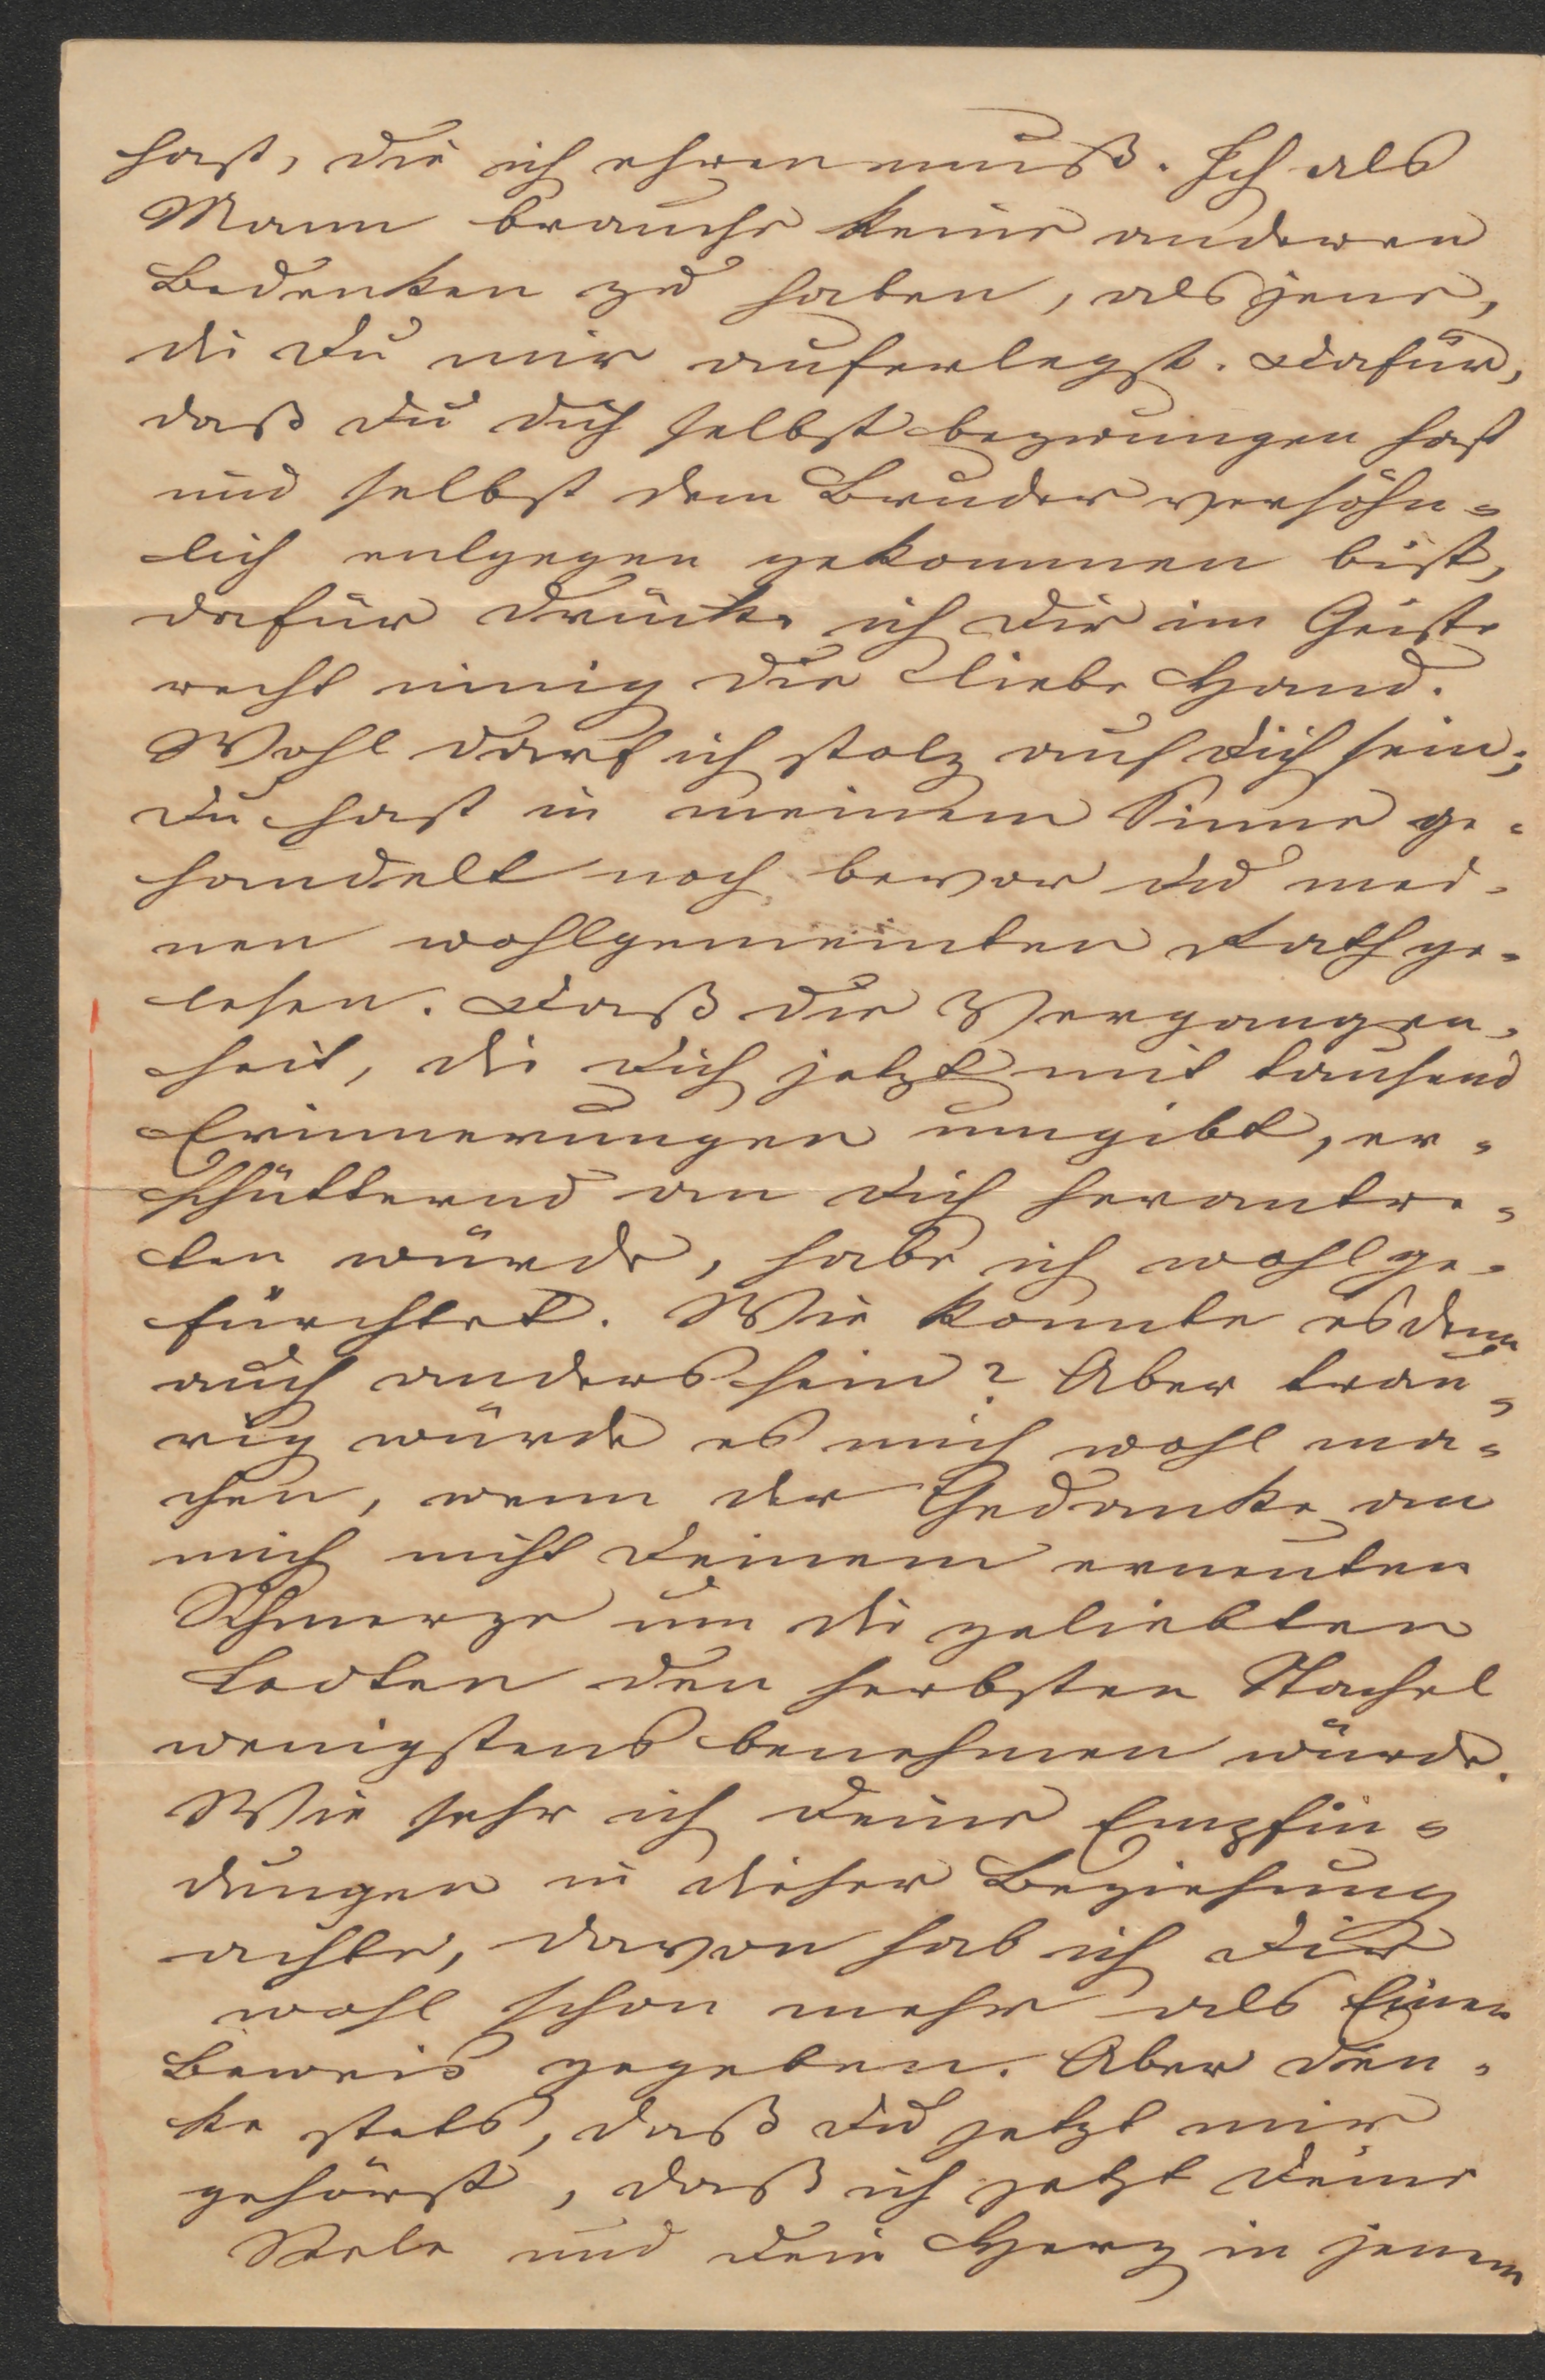 hast, die ich ehren muß. Ich als
Mann brauche keine anderen
Bedenken zu haben, als jene,
die Du mir auferlegst. Dafür,
daß Du Dich selbst bezwungen hast
und selbst dem Bruder versöhn=
lich entgegen gekommen bist,
dafür drücke ich Dir im Geiste
recht innig die liebe Hand.
Wohl darf ich stolz auf Dich sein;
Du hast in meinem Sinne ge=
handelt noch bevor Du mei=
nen wohlgemeinten Rath ge=
lesen. Daß die Vergangen=
heit, die Dich jetzt mit tausend
Erinnerungen umgibt, er=
schütternd an Dich herantre=
ten würde, habe ich wohl ge=
fürchtet. Wie konnte es denn
auch anders sein? Aber trau=
rig würde es mich wohl ma=
chen, wenn der Gedanke an
mich nicht Deinem erneuten
Schmerze um die geliebten
Todten den herbsten Stachel
wenigstens benehmen würde.
Wie sehr ich Deine Empfin=
dungen in dieser Beziehung
achte, davon hab ich Dir
wohl schon mehr als Einen
Beweis gegeben. Aber den=
ke stets, daß Du jetzt mir
gehörst, daß ich jetzt Deine
Seele und Dein Herz in jenem